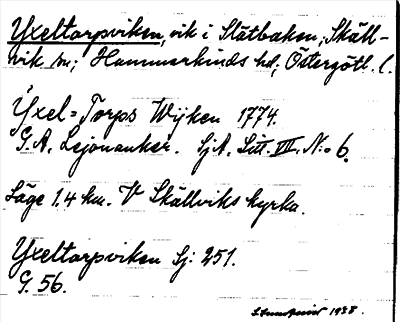 Yxeltorpsviken, vik i Slätbaken, Skäll-
vik sn; Hammarkinds hd; Östergötl. l.
Yxel=Torps Wijken 1774.
G. A. Lejonanker. SjA. Litt. VII. No 6.
Läge 1.4 km. V Skällviks kyrka.
Yxeltorpsviken Sj: 251.
G. 56.
1938